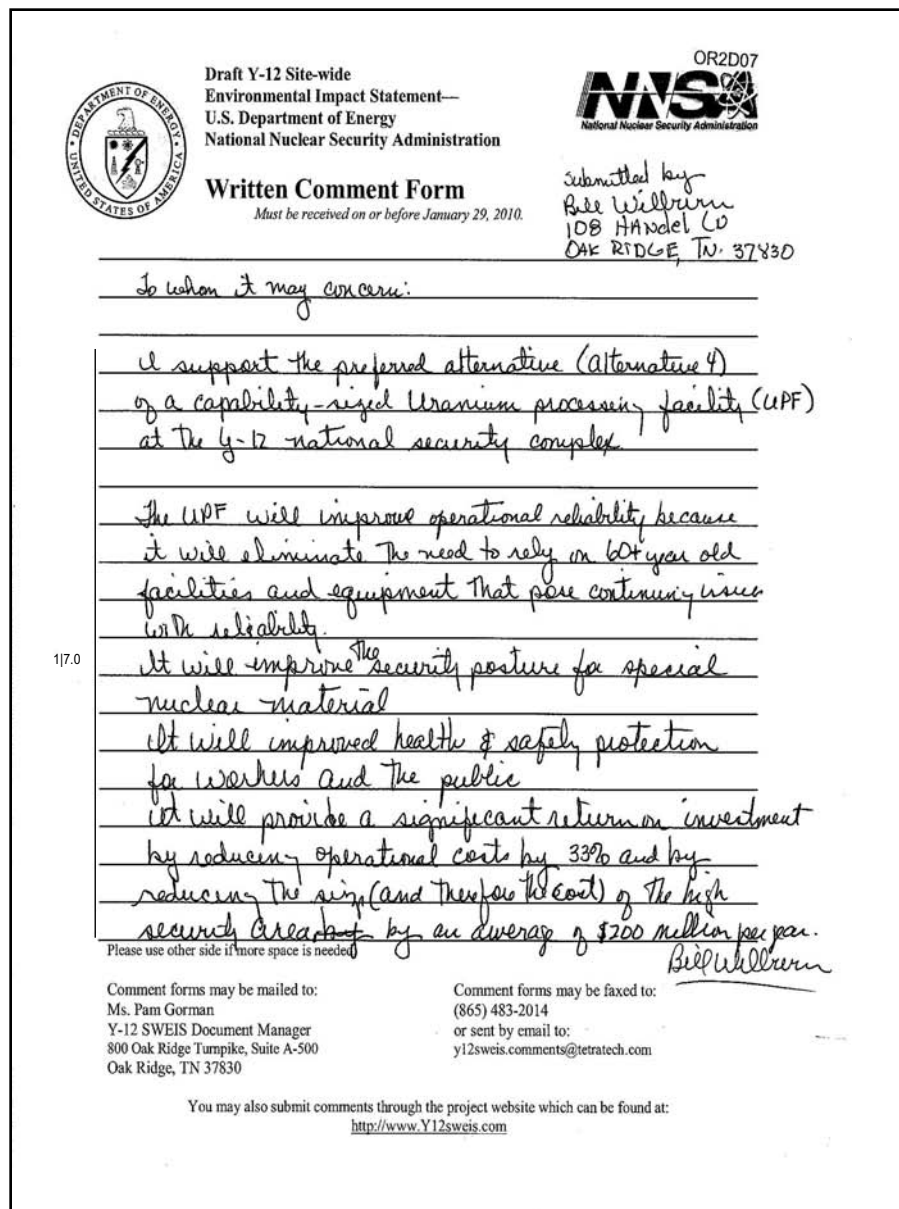 OR2D07
DEPARTMENT OF ENERGY
UNITED STATES OF AMERICA
Draft Y-12 Site-wide
Environmental Impact Statement—
U.S. Department of Energy
National Nuclear Security Administration
NNSA
National Nuclear Security Administration
Written Comment Form
Must be received on or before January 29, 2010.
Submitted by
Bill Wilburn
108 HANdel LN
OAK RIDGE, TN. 37830
To whom it may concern:
I support the preferred alternative (alternative 4)
of a capability-sized Uranium processing facility (UPF)
at the Y-12 national security complex
The UPF will improve operational reliability because
it will eliminate the need to rely on 60+ year old
facilities and equipment that pose continuing issues
with reliability.
1|7.0
It will improve the security posture for special
nuclear material
It will improved health & safety protection
for workers and the public
It will provide a significant return on investment
by reducing operational costs by 33% and by
reducing the size (and therefore the cost) of the high
security area by an average of $200 million per year.
Please use other side if more space is needed
Bill Wilburn
Comment forms may be mailed to:
Ms. Pam Gorman
Y-12 SWEIS Document Manager
800 Oak Ridge Turnpike, Suite A-500
Oak Ridge, TN 37830
Comment forms may be faxed to:
(865) 483-2014
or sent by email to:
y12sweis.comments@tetratech.com
You may also submit comments through the project website which can be found at:
http://www.Y12sweis.com